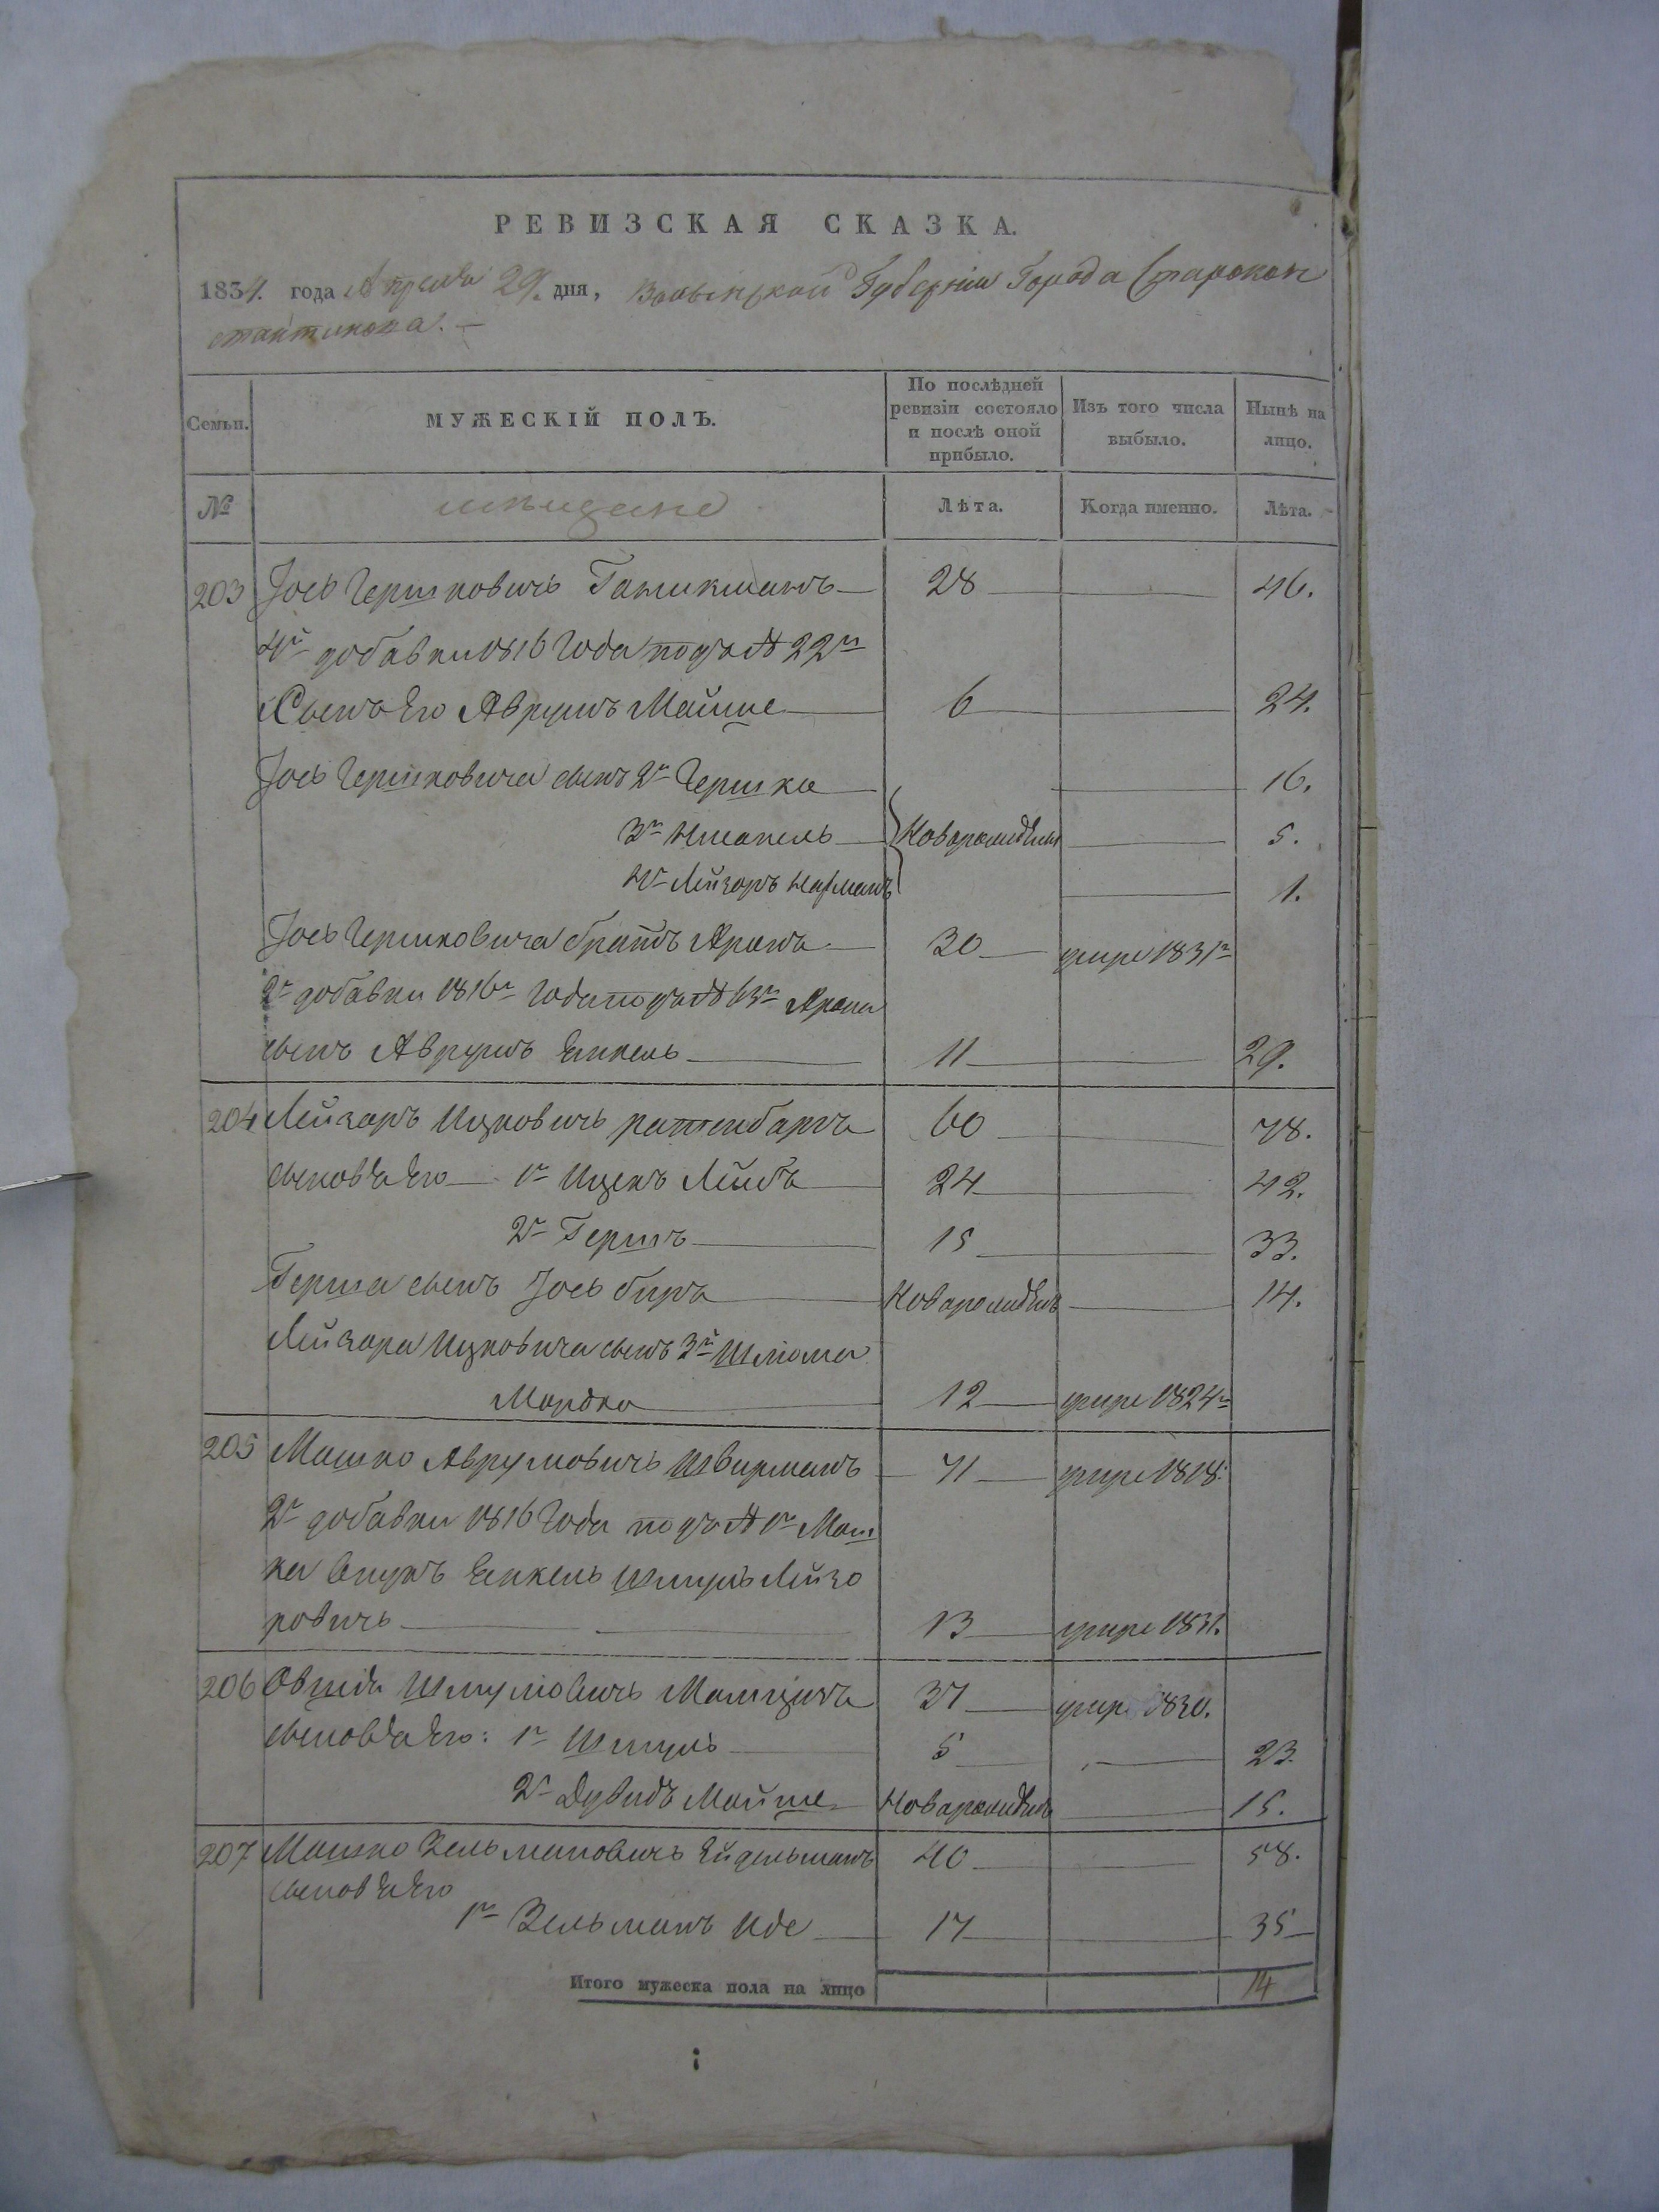 РЕВИЗСКАЯ СКАЗКА.
1834. года Апреля 29. дня, Волынской Губернии Города Старокон
стантинова. —
Семьи. МУЖЕСКІЙ ПОЛЪ. По послѣдней ревизіи состояло и послѣ оной прибыло. Изъ того числа выбыло. Нынѣ на лицо.
№ мещане Лѣта. Когда именно. Лѣта.
203 Іось Гершковичъ 28 46.
4й добавки 1816 Года подъ № 22м
Сынъ Его Аврумъ Майше 6 24.
Іось Гершковича сынъ 2й Гершко 16.
3й Новорожденъ 5.
4й Лейзоръ 1.
Іось Гершковича братъ Аронъ 30 умре 1831г
2й добавки 1816г Года подъ № 63м Арона
сынъ Аврумъ Янкель 11 29.
204 Лейзоръ Ицковичъ ратенбаръ 60 78.
сыновья Его 1й Ицекъ Лейбъ 24 42.
2й Гершъ 15 33.
Герша сынъ Іось беръ Новорожденъ 14.
Лейзора Ицковича сынъ 3й Шлиома
Мордко 12 умре 1824г
205 Мошко Аврумовичъ Швирманъ 71 умре 1818.
2й добавки 1816 Года подъ № 1м Мош
ка внукъ Янкель Шмуль Лейзо
ровичъ 13 умре 1831.
206 Овшія Шмуліовичъ 37 умре 1830.
сыновья Его: 1й Шмуль 5 23.
2й Дувидъ Мойше Новорожденъ 15.
207 Мошко Зельмановичъ Ейдельманъ 40 58.
сыновья Его
1й Зельманъ Иде 17 35
Итого мужеска пола на лицо 14